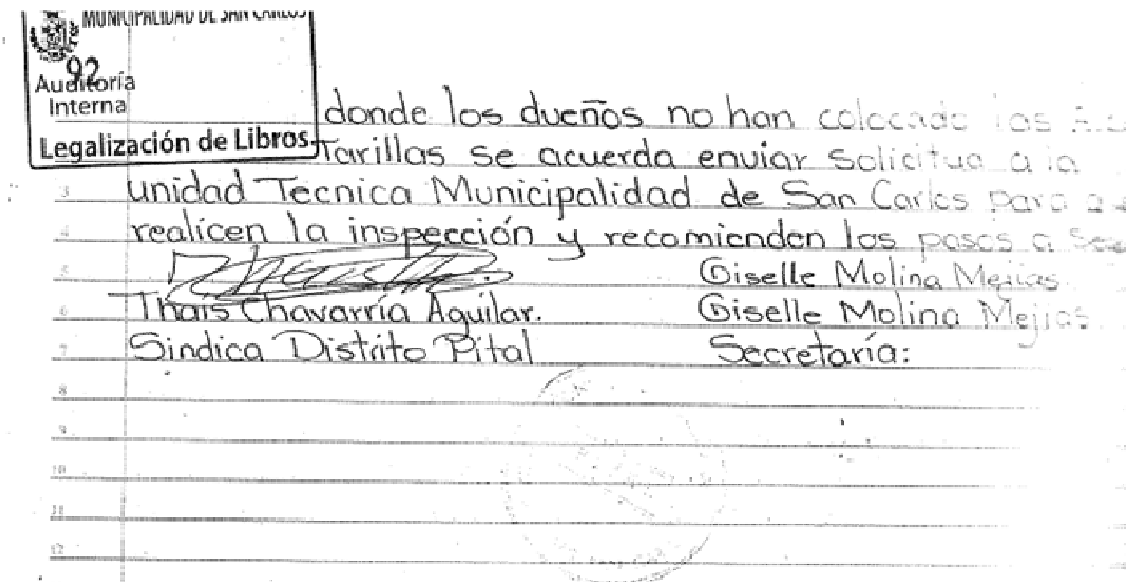 MUNICIPALIDAD DE SAN CARLOS
92
Auditoría
Interna
Legalización de Libros
donde los dueños no han colocado las
Tarillas se acuerda enviar solicitud a la
3 unidad Tecnica Municipalidad de San Carlos para
4 realicen la inspección y recomienden los pasos a
5 Giselle Molina Mejias
6 Thais Chavarría Aguilar. Giselle Molina Mejias
7 Sindica Distrito Pital Secretaría:
8
9
10
11
12